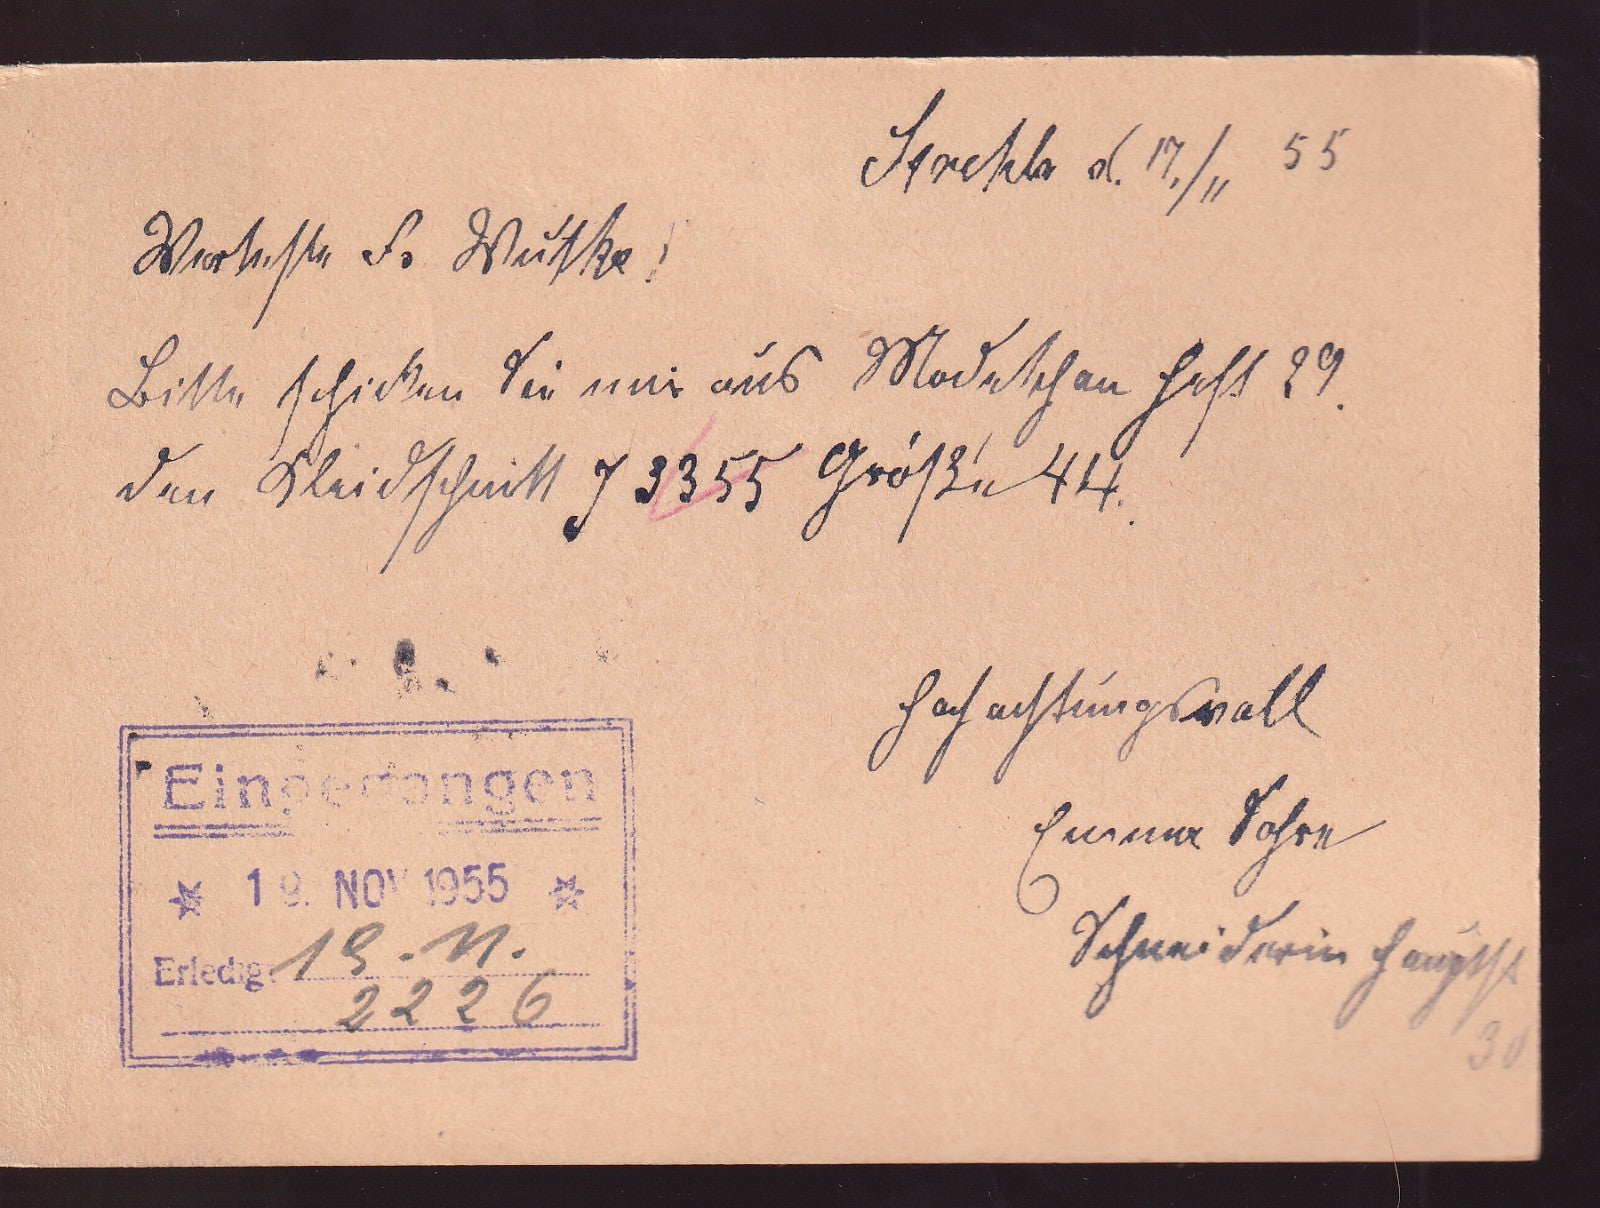 Strehla d. 17./11 55
Werteste F. Wutke!
Bitte schicken Sie mir aus Modeschau Heft 29.
den Kleidschnitt J 3355 Größe 44.
Hochachtungsvoll
Emma Sohre
Schneiderin Hauptst
30
Eingegangen
* 19. NOV 1955 *
Erledigt 19. 11.
2226